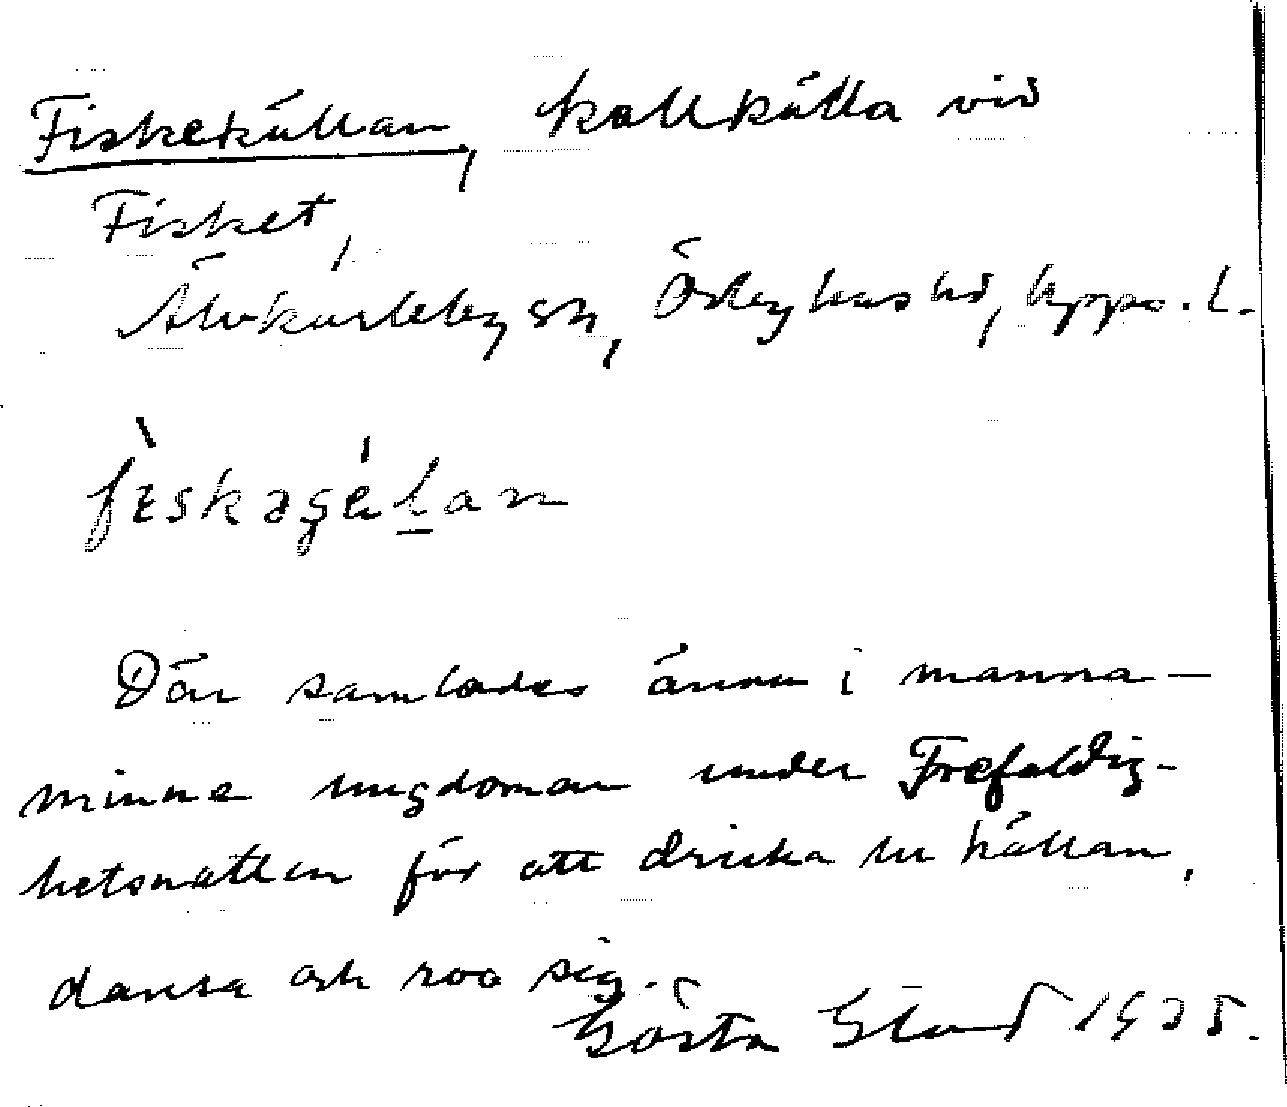 Fiskekällan, kallkälla vid
Fisket,
Älvkarleby sn, Örbyhus hd, Upps. l.
Där samlades ännu i manna-
minne ungdomen under Trefaldig-
hetsnatten för att dricka ur källan,
dansa och roa sig.
Gösta 1935.